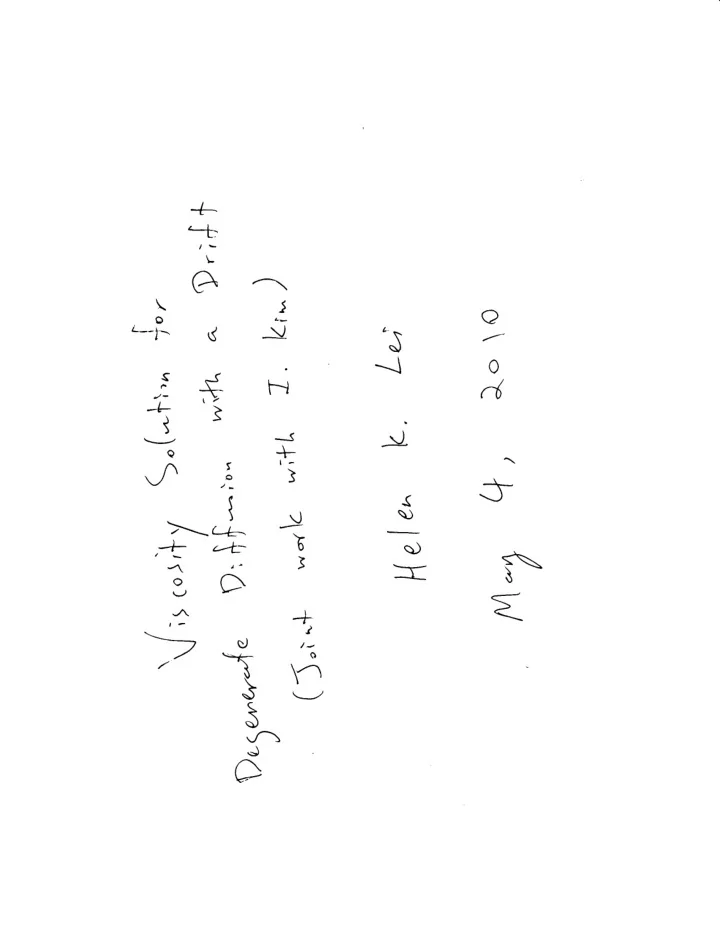 Viscosity Solution for
Degenerate Diffusion with a Drift
(Joint work with I. Kim)
Helen K. Lei
May 4, 2010